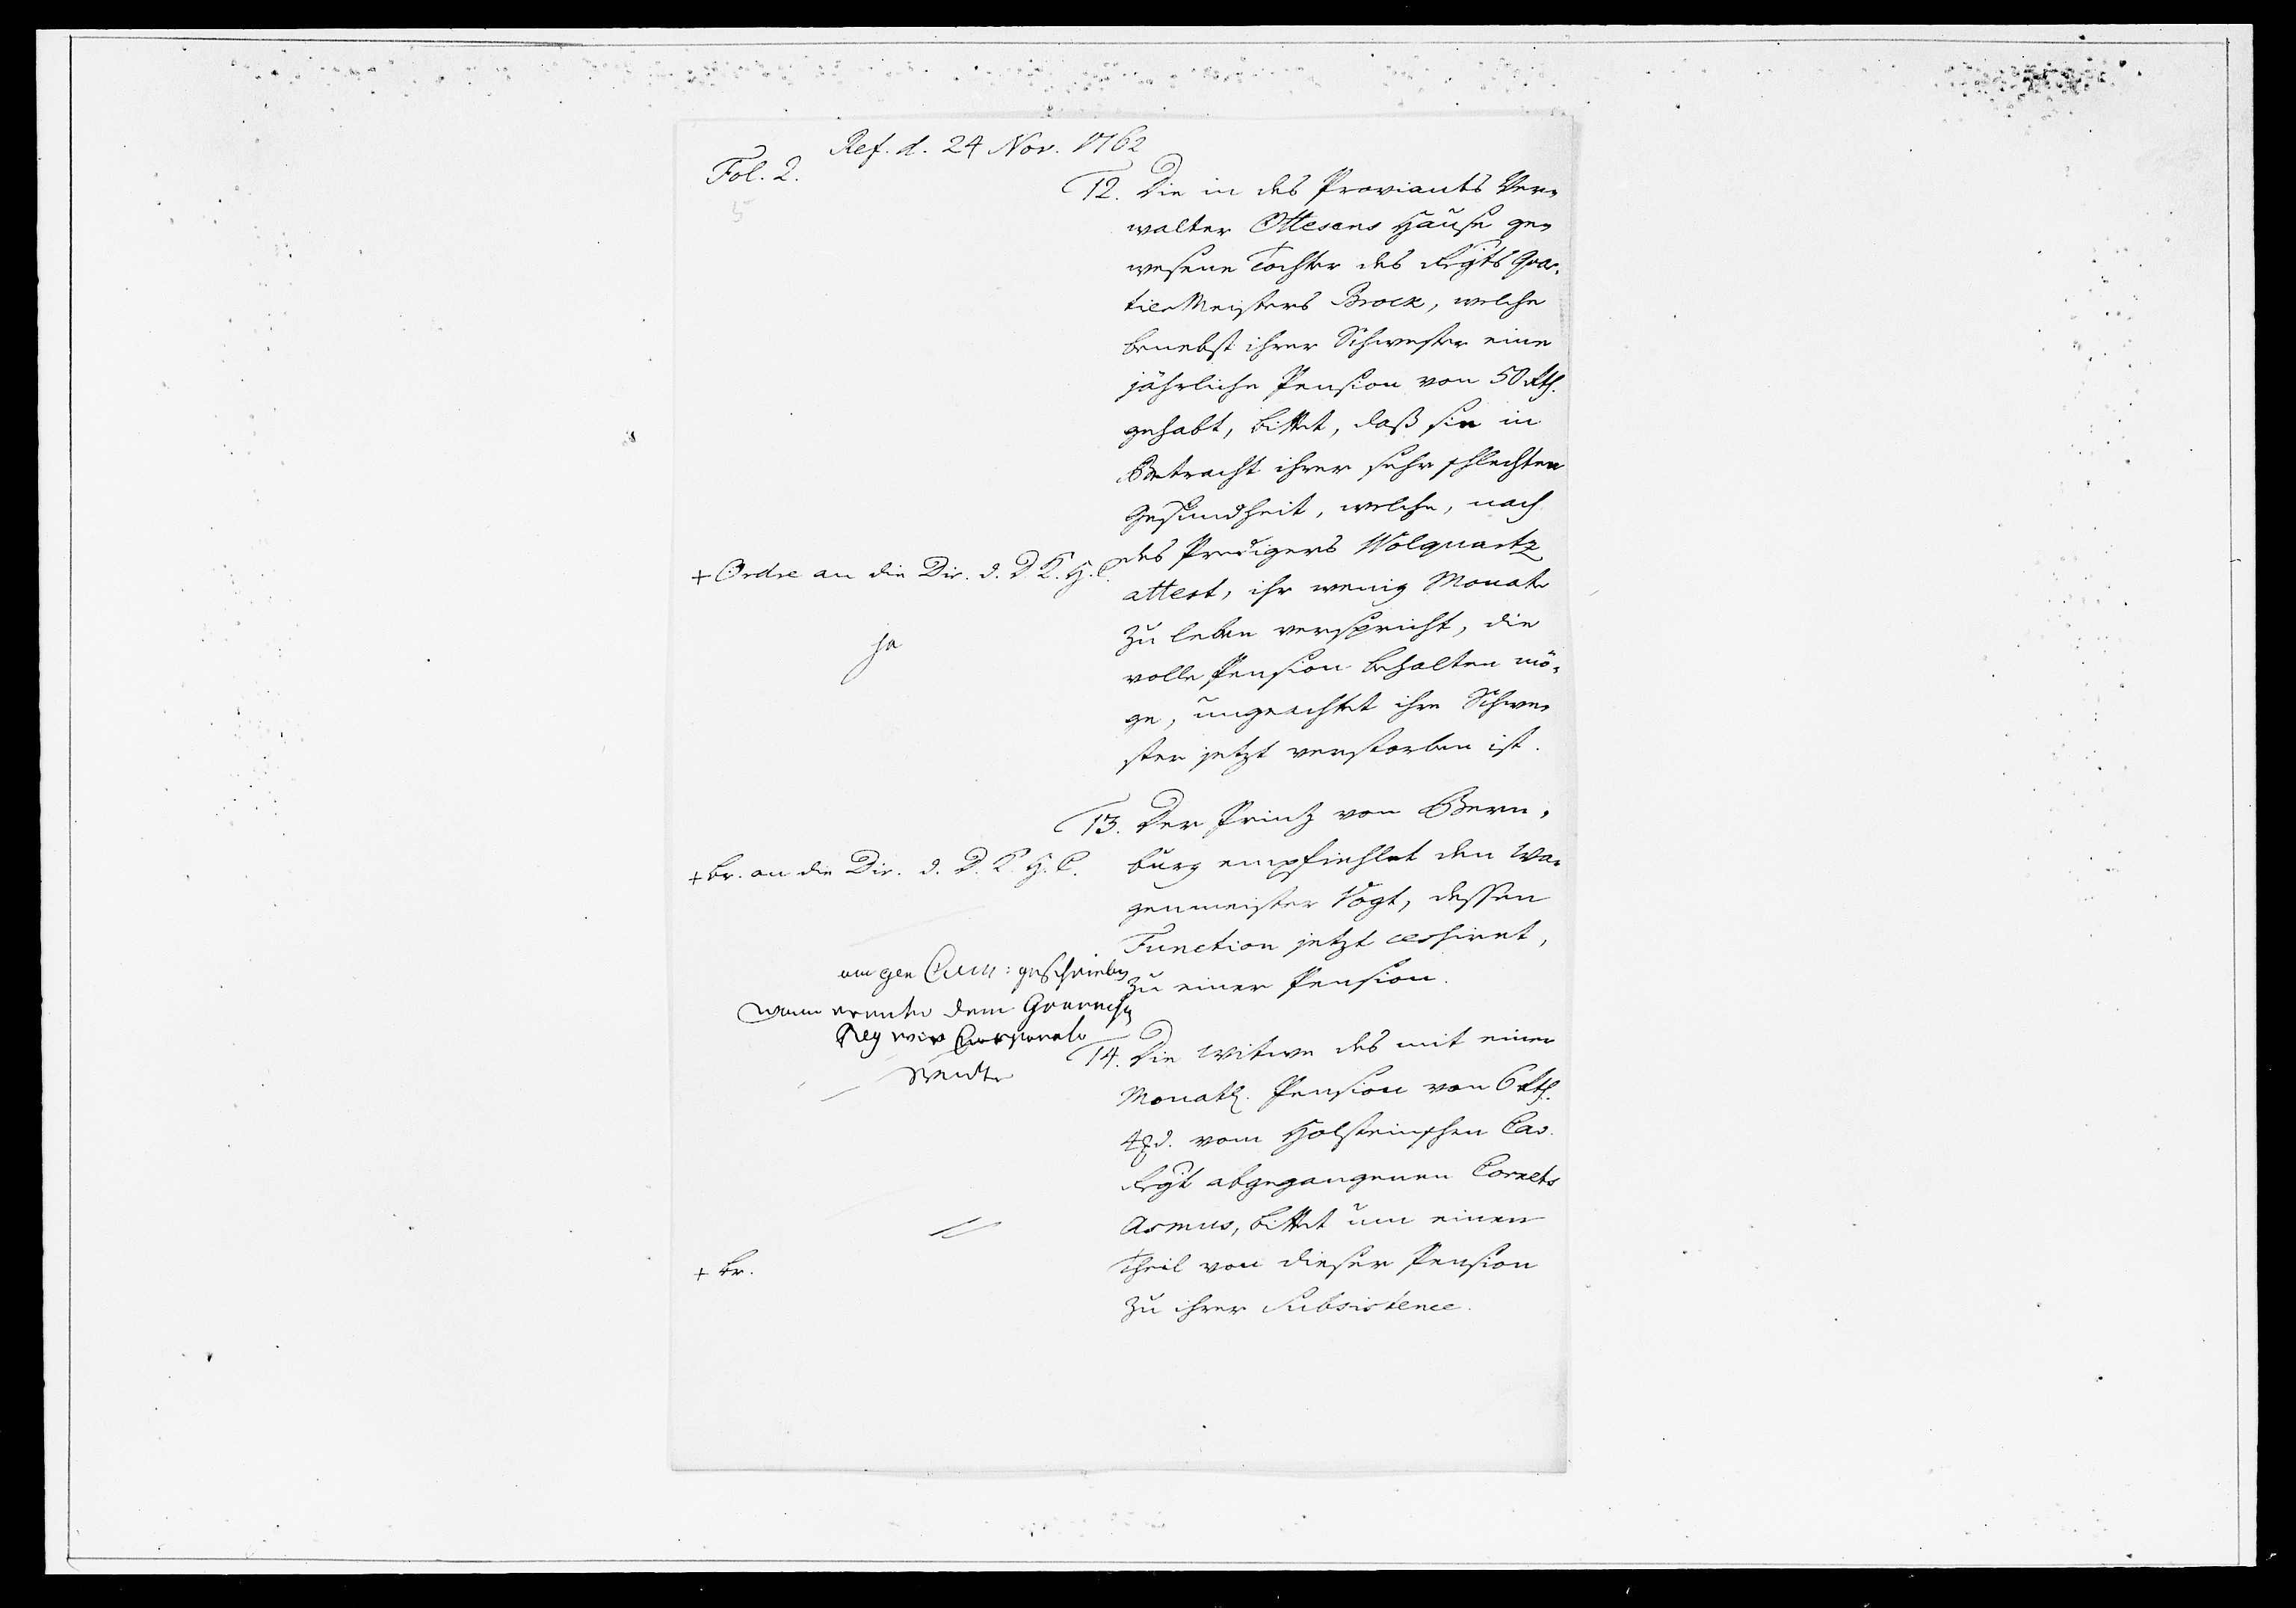 Ref. d. 24 Nov. 1762
Fol. 2.
5
12. Die in des Proviants Ver-
walter Ottesens Hause ge-
wesene Tochter des Regts Quar-
tierMeisters Brock, welche
benebst ihrer Schwester eine
jährliche Pension von 50 Rth.
gehabt, bittet, daß sie in
Betracht ihrer sehr schlechten
Gesundheit, welche, nach
des Predigers Wolquartz
attest, ihr wenig Monate
zu leben verspricht, die
volle Pension behalten mö-
ge, ungeachtet ihre Schwe-
ster jetzt verstorben ist.
+ Ordre an die Dir. d. D. K. H. C.
ja
13. Der Prinz von Bern-
burg empfiehlet den Wa-
genmeister Vogt, dessen
Function jetzt cessiret,
zu einer Pension.
+ br. an die Dir. d. D. K. H. C.
geschrieben
dem
Reg
14. Die Witwe des mit einer
Monatl. Pension von 6 Rth.
4 ß d. vom Holsteinschen Cav.
Regt abgegangenen Cornets
Asmus, bittet um einen
Theil von dieser Pension
zu ihrer Subsistence.
+ br.